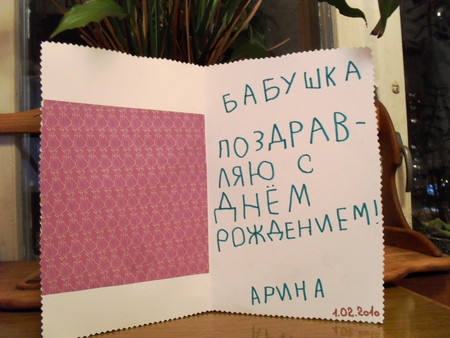 БАБУШКА
ПОЗДРАВ-
ЛЯЮ С
ДНЁМ
РОЖДЕНИЕМ!
АРИНА
1.02.2010